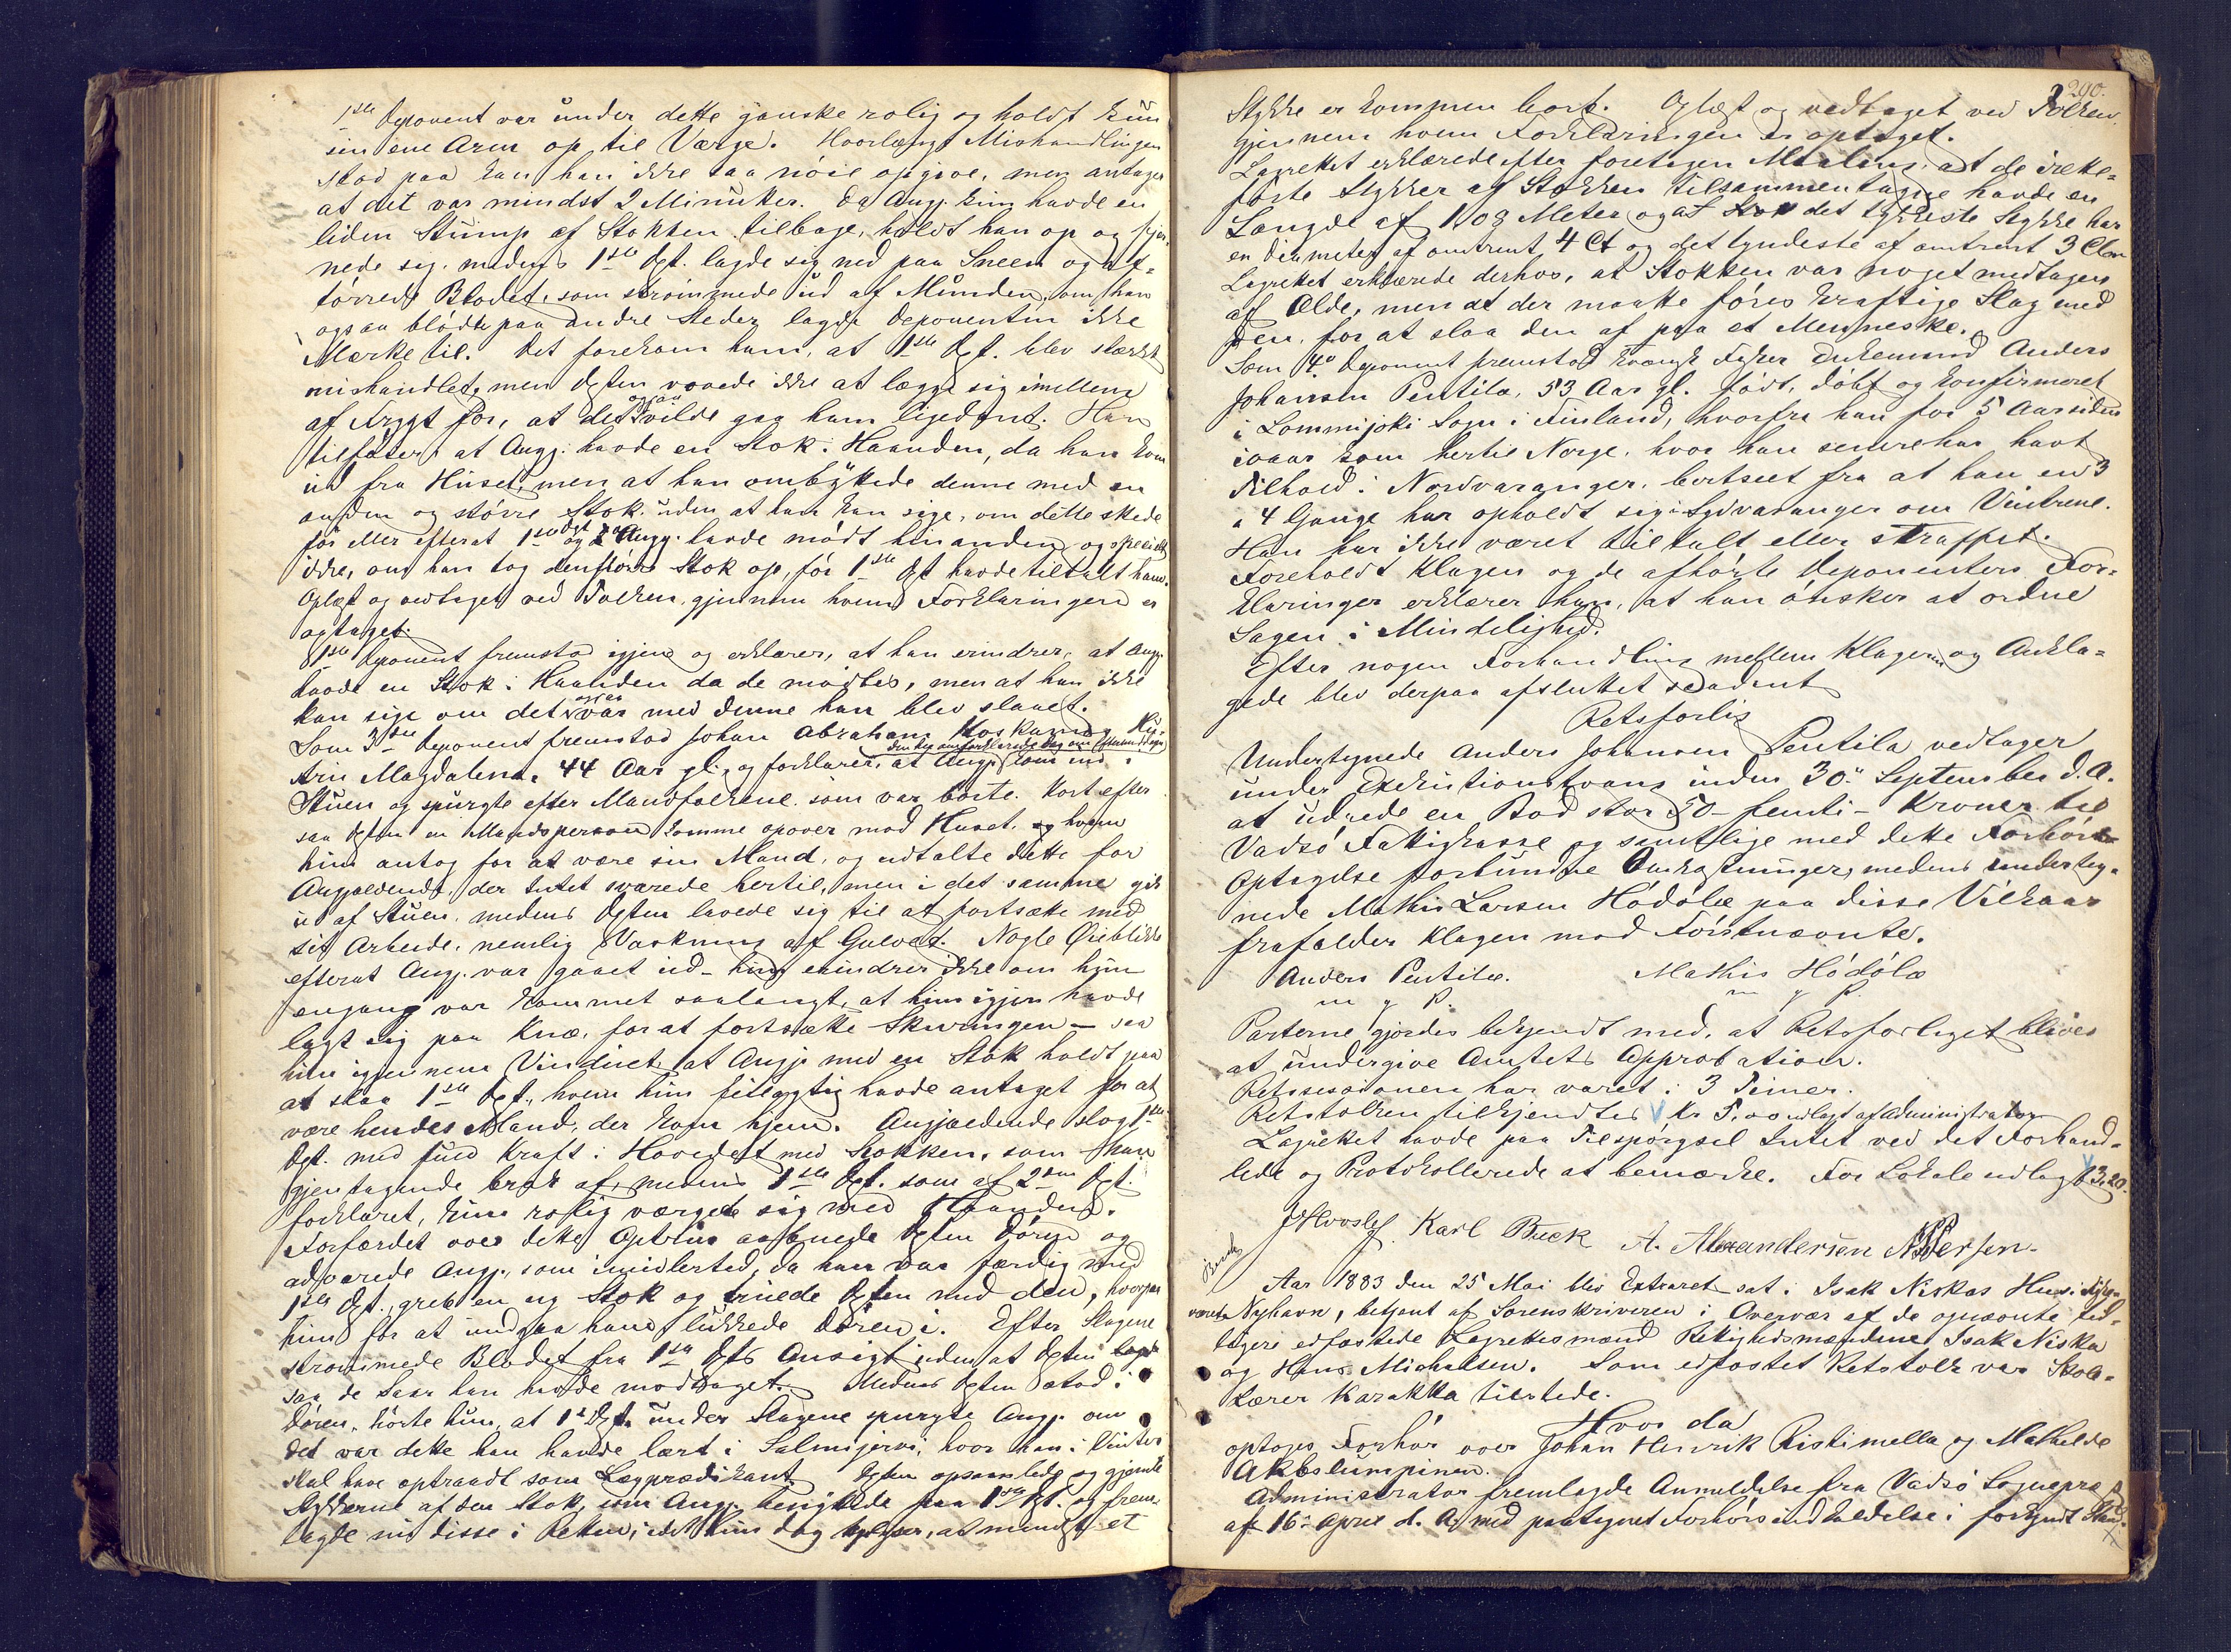 1ste Deponent var under dette ganske rolig og holdt kun
sin ene Arm op til Værge. Hvorlængt Mishandlingen
stod paa kan han ikke saa nøie opgive, men antager
at det var mindst 2 Minutter. Da Angj. kun havde en
liden Stump af Stokken tilbage, holdt han op og fjer-
nede sig, medens 1ste Dpt. lagde sig ned paa Sneen og af-
tørrede Blodet, som strømmede ud af Munden; om han
ogsaa blødte paa andre Steder lagde Deponenten ikke
Mærke til. Det forekom ham, at 1ste Dpt. blev stærkt
mishandlet, men Dpten vovede ikke at lægge sig imellem
af Frygt for, at det ogsaa vilde gaa ham ligedant. Han
tilføier at Angj. havde en Stok i Haanden, da han kom
ud fra Huset, men at han ombyttede denne med en
anden og større Stok uden at han kan sige, om dette skede
før eller efterat 1ste Dpt og Angj. havde mødt hinanden og specielt
ikke, om han tog den større Stok op, før 1ste Dpt havde tiltalt ham.
Oplæst og vedtaget ved Tolken, gjennem hvem Forklaringen er
optaget.
1ste Deponent fremstod igjen og erklærer, at han erindrer, at Angj.
havde en Stok i Haanden da de mødtes, men at han ikke
kan sige om det ogsaa var med denne han blev slaaet.
Som 3die Deponent fremstod Johan Abraham Koskamos Hu-
stru Magdalena, 44 Aar gl. og forklarer, at Angj. kom ind i
Stuen og spurgte efter Mandfolkene som var borte. Kort efter
saa Dpten en Mandsperson komme opover mod Huset, og hvem
hun antog for at være sin Mand, og udtalte dette for
Angjældende, der Intet svarede hertil, men i det samme gik
ud af Stuen, medens Dpten lavede sig til at fortsætte med
sit Arbeide, nemlig Vaskning af Gulvet. Nogle Øieblikke
efterat Angj. var gaaet ud - hun erindrer ikke om hun
engang var kommet saalangt, at hun igjen havde
lagt sig paa Knæ, for at fortsætte Skuringen - saa
hun igjennem Vinduet, at Angj. med en Stok holdt paa
at slaa 1ste Dpt., hvem hun feilagtig havde antaget for at
være hendes Mand, der kom hjem. Angjældende slog 1ste
Dpt. med fuld Kraft i Hovedet med Stokken, som han
gjentagende brak af, medens 1ste Dpt. som af 2den Dpt.
forklaret, kun rolig værgede sig med Haanden.
Forfærdet over dette Optrin aabnede Dpten Døren og
advarede Angj., som imidlertid, da han var færdig med
1ste Dpt., greb en ny Stok og truede Dpten med den, hvorpaa
hun for at undgaa ham lukkede Døren i. Efter Slagene
strømmede Blodet fra 1ste Dpts Ansigt uden at Dpten
saa de Saar han havde modtaget. Medens Dpten stod i
Døren, hørte hun, at 1ste Dpt. under Slagene spurgte Angj. om
det var dette han havde lært i Salmijervi, hvor han i Vinter
skal have optraadt som Lægprædikant. Dpten opsamlede og gjemte
Stykkerne af den Stok, som Angj. benyttede paa 1ste Dpt. og frem-
lagde nu disse i Retten, idet hun dog oplyser, at mindst et
290.
Stykke er kommen bort. Oplæst og vedtaget ved Tolken
gjennem hvem Forklaringen er optaget.
Lagrettet erklærede efter foretagen Maaling, at de ireke-
førte Stykker af Stokken tilsammentagne havde en
Længde af 1,03 Meter og at det tykkeste Stykke har
en Diameter af omtrent 4 Ct og det tyndeste af omtrent 3 Ctm
Lagrettet erklærede derhos, at Stokken var noget medtagen
af Ælde, men at der maatte føres kraftige Slag med
den, for at slaa den af paa et Menneske.
Som 4de Deponent fremstod kvænsk Fisker Enkemand Anders
Johansen Pentila, 53 Aar gl. født, døbt og konfirmeret
i Lommijoki Sogn i Finland, hvorfra han for 5 Aar siden
ivaar kom hertil Norge, hvor han senere har havt
Tilhold i Nordvaranger, bortseet fra at han en 3
a 4 Gange har opholdt sig i Sydvaranger om Vintrene.
Han har ikke været tiltalt eller straffet.
Foreholdt Klagen og de afhørte Deponenters For-
klaringer erklærer han, at han ønsker at ordne
Sagen i Mindelighed.
Efter nogen Forhandling mellem Klageren og Ankla-
gede blev derpaa afsluttet saadant
Retsforlig
Undertegnede Anders Johansen Pentila vedtager
under Exekutionstvang inden 30te September d. A.
at udrede en Bod stor 50 - femti - Kroner til
Vadsø Fattigkasse og samtlige med dette Forhørs
Optagelse forbundne Omkostninger, medens underteg-
nede Mathis Larsen Hødølæ paa disse Vilkaar
frafalder Klagen mod Førstnævnte.
Anders Pentilæ. Mathis Hødølæ
m. p. P. m. p. P.
Parterne gjordes bekjendt med, at Retsforliget bliver
at undergive Amtets Approbation.
Retssessionen har varet i 3 Timer.
Retstolken tilkjendtes Kr udlagt af Administrator
Lagrettet havde paa Tilspørgsel Intet ved det Forhand-
lede og Protokollerede at bemærke. For Lokale udlagt 3,20.
Karl Buck A. Alexandersen
Aar 1883 den 25 Mai blev Extraret sat i Isak Niskas Hus i
Nyhavn, betjent af Sorenskriveren i Overvær af de opnævnte tid-
ligere edfæstede Lagrettesmænd Rettighedsmændene Isak Niska
og Hans Michalsen. Som edfæstet Retstolk var Skole-
lærer Karakka tilstede.
Hvor da
optoges Forhør over Johan Henrik Ristimella og Mathilde
Akkslumpinen.
Administrator fremlagde Anmeldelse fra Vadsø Sognepræst
af 16de April d. A. med paategnet Forhørsindkaldelse i forkyndt Stand.